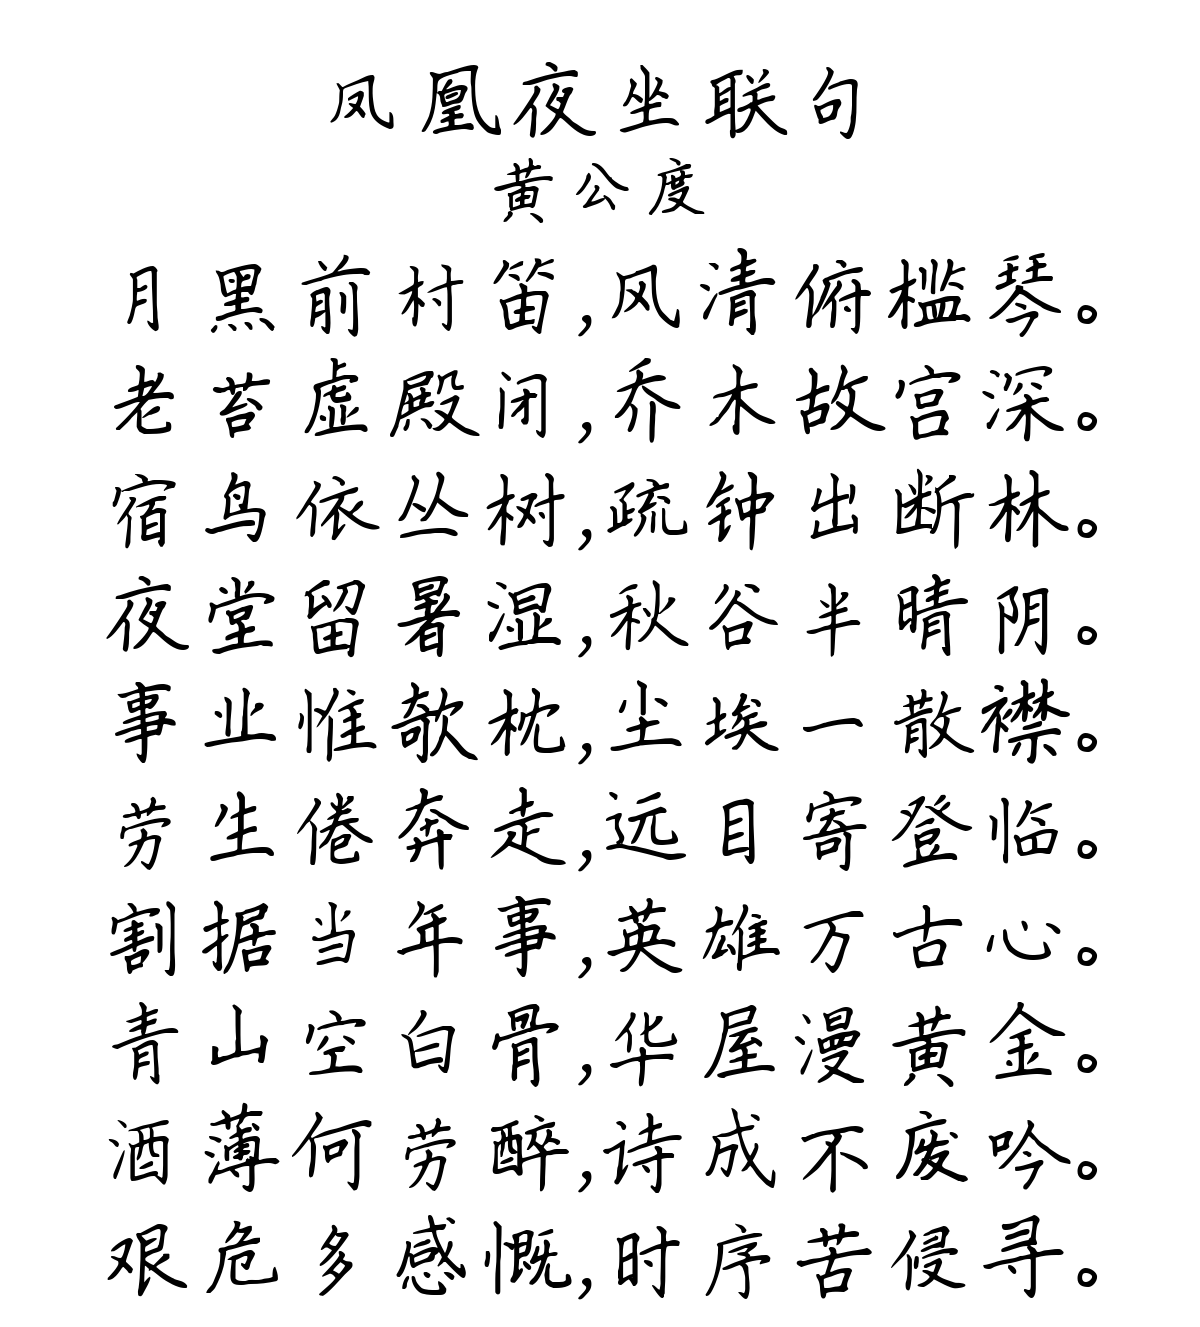 凤凰夜坐联句
黄公度
月黑前村笛,风清俯槛琴。
老苔虚殿闭,乔木故宫深。
宿鸟依丛树,疏钟出断林。
夜堂留暑湿,秋谷半晴阴。
事业惟欹枕,尘埃一散襟。
劳生倦奔走,远目寄登临。
割据当年事,英雄万古心。
青山空白骨,华屋漫黄金。
酒薄何劳醉,诗成不废吟。
艰危多感慨,时序苦侵寻。